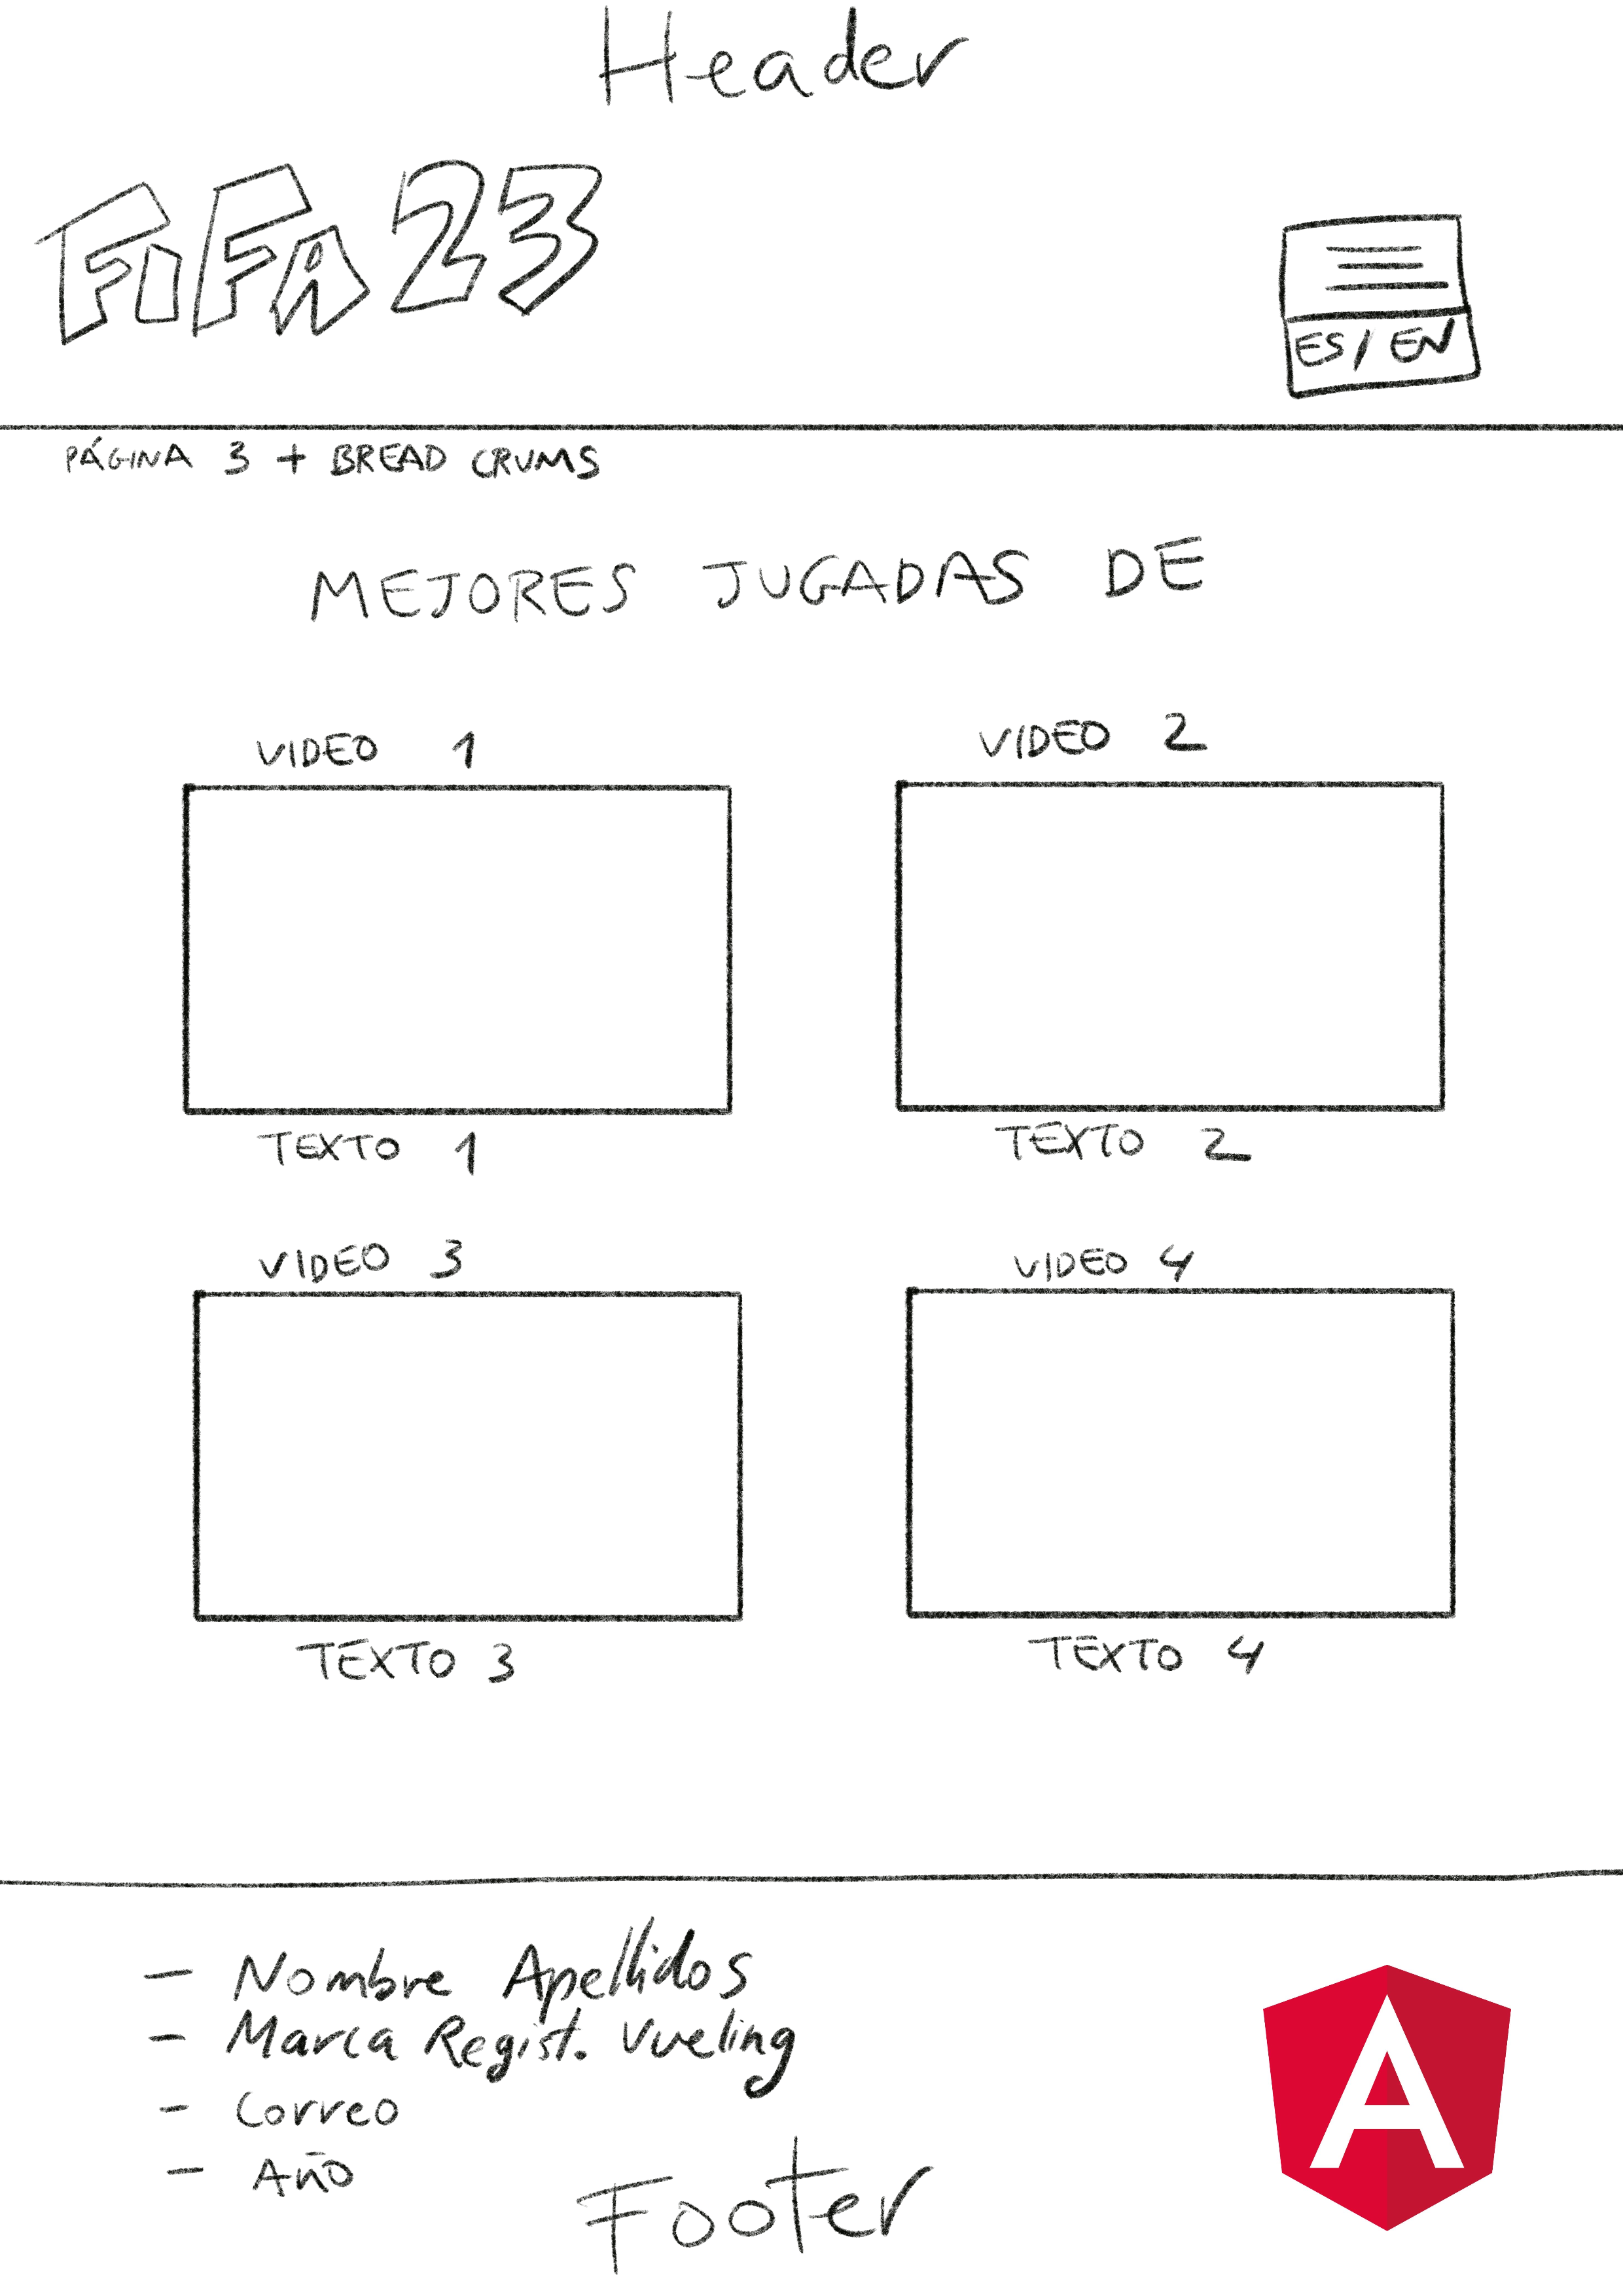 Header
FiFA 23
ES / EN
PÁGINA 3 + BREAD CRUMS
MEJORES JUGADAS DE
VIDEO 1
VIDEO 2
TEXTO 1
TEXTO 2
VIDEO 3
VIDEO 4
TEXTO 3
TEXTO 4
- Nombre Apellidos
- Marca Regist. Vueling
- Correo
- Año
Footer
A